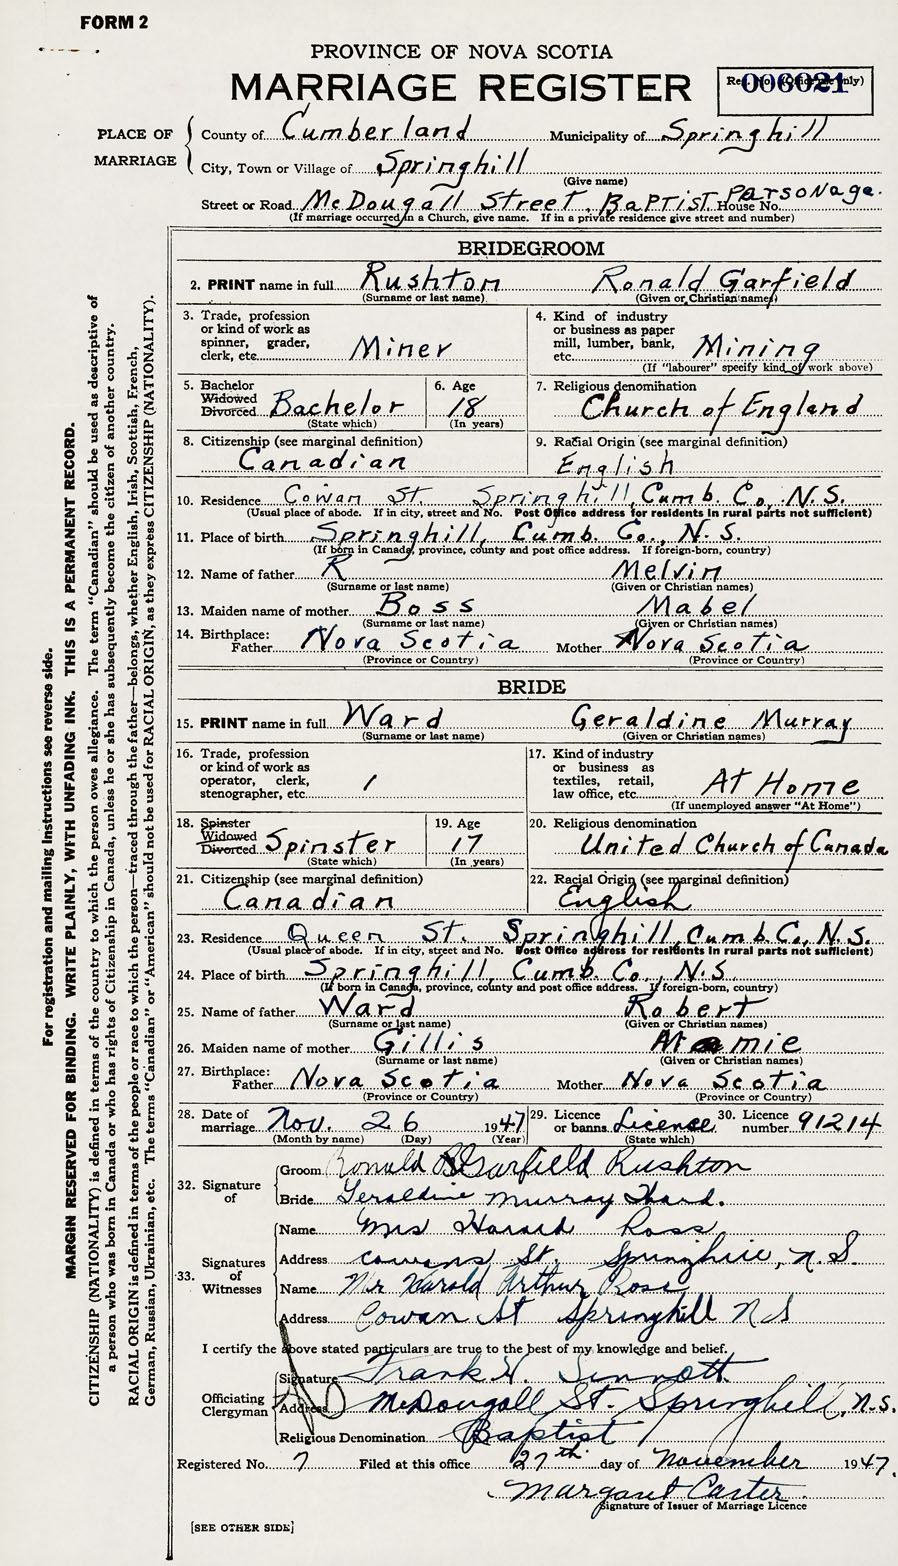 FORM 2
PROVINCE OF NOVA SCOTIA
MARRIAGE REGISTER
Reg. No. (Office use only)
006021
PLACE OF MARRIAGE
County of Cumberland Municipality of Springhill
City, Town or Village of Springhill
(Give name)
Street or Road McDougall Street, Baptist Parsonage. House No.
(If marriage occurred in a Church, give name. If in a private residence give street and number)
BRIDEGROOM
2. PRINT name in full Rushton Ronald Garfield
(Surname or last name) (Given or Christian names)
3. Trade, profession or kind of work as spinner, grader, clerk, etc. Miner
4. Kind of industry or business as paper mill, lumber, bank, etc. Mining
(If "labourer" specify kind of work above)
5. Bachelor Widowed Divorced Bachelor
(State which)
6. Age 18
(In years)
7. Religious denomination
Church of England
8. Citizenship (see marginal definition)
Canadian
9. Racial Origin (see marginal definition)
English
10. Residence Cowan St. Springhill, Cumb. Co., N.S.
(Usual place of abode. If in city, street and No. Post Office address for residents in rural parts not sufficient)
11. Place of birth Springhill, Cumb. Co., N.S.
(If born in Canada, province, county and post office address. If foreign-born, country)
12. Name of father R Melvin
(Surname or last name) (Given or Christian names)
13. Maiden name of mother Boss Mabel
(Surname or last name) (Given or Christian names)
14. Birthplace: Father Nova Scotia Mother Nova Scotia
(Province or Country) (Province or Country)
BRIDE
15. PRINT name in full Ward Geraldine Murray
(Surname or last name) (Given or Christian names)
16. Trade, profession or kind of work as operator, clerk, stenographer, etc. /
17. Kind of industry or business as textiles, retail, law office, etc. At Home
(If unemployed answer "At Home")
18. Spinster Widowed Divorced Spinster
(State which)
19. Age 17
(In years)
20. Religious denomination
United Church of Canada
21. Citizenship (see marginal definition)
Canadian
22. Racial Origin (see marginal definition)
English
23. Residence Queen St. Springhill, Cumb Co, N.S.
(Usual place of abode. If in city, street and No. Post Office address for residents in rural parts not sufficient)
24. Place of birth Springhill, Cumb. Co., N.S
(If born in Canada, province, county and post office address. If foreign-born, country)
25. Name of father Ward Robert
(Surname or last name) (Given or Christian names)
26. Maiden name of mother Gillis
(Surname or last name) (Given or Christian names)
27. Birthplace: Father Nova Scotia Mother Nova Scotia
(Province or Country) (Province or Country)
28. Date of marriage Nov. 26 1947
(Month by name) (Day) (Year)
29. Licence or banns Licence
(State which)
30. Licence number 91214
32. Signature of
Groom Ronald Garfield Rushton
Bride Geraldine Murray Ward.
33. Signatures of Witnesses
Name Mrs Harold Ross
Address Cowans St. Springhill, N.S
Name Mr Harold Arthur Ross
Address Cowan St Springhill N S
I certify the above stated particulars are true to the best of my knowledge and belief.
Officiating Clergyman
Signature Frank H. Sinnott
Address McDougall St. Springhill, N.S.
Religious Denomination Baptist
Registered No. 7 Filed at this office 27th day of November 1947.
Margaret Carter
Signature of Issuer of Marriage Licence
[SEE OTHER SIDE]
For registration and mailing instructions see reverse side.
MARGIN RESERVED FOR BINDING. WRITE PLAINLY, WITH UNFADING INK. THIS IS A PERMANENT RECORD.
CITIZENSHIP (NATIONALITY) is defined in terms of the country to which the person owes allegiance. The term "Canadian" should be used as descriptive of
a person who was born in Canada or who has rights of Citizenship in Canada, unless he or she has subsequently become the citizen of another country.
RACIAL ORIGIN is defined in terms of the people or race to which the person—traced through the father—belongs, whether English, Irish, Scottish, French,
German, Russian, Ukrainian, etc. The terms "Canadian" or "American" should not be used for RACIAL ORIGIN, as they express CITIZENSHIP (NATIONALITY).